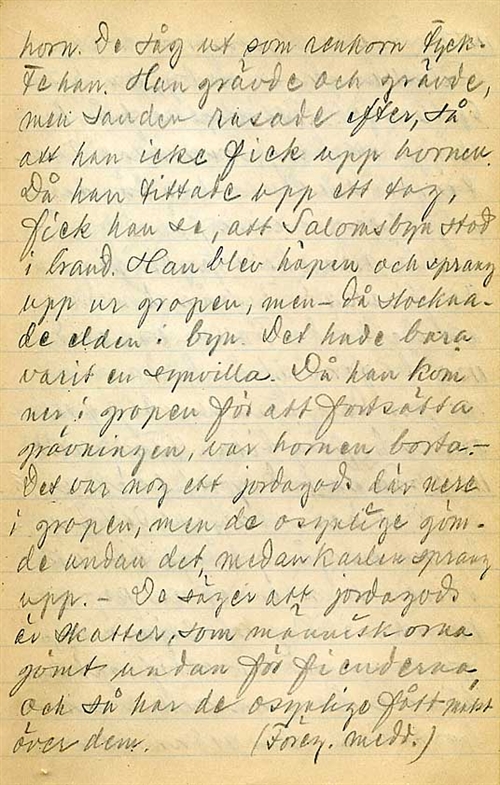 horn. De såg ut som renhorn tyck-
te han. Han grävde och grävde,
men sanden rasade efter, så
att han icke fick upp hornen.
Då han tittade upp ett tag,
fick han se, att Salomsbyn stod
i brand. Han blev häpen och sprang
upp ur gropen, men – då slockna-
de elden i byn. Det hade bara
varit en synvilla. Då han kom
ner i gropen för att fortsätta
grävningen, var hornen borta. –
Det var nog ett jordagods där nere
i gropen, men de osynlige göm-
de undan det, medan karlen sprang
upp. – De säger att jordagods
är skatter, som människorna
gömt undan för fienderna,
och så har de osynlige fått makt
över dem. (Föreg. medd.)